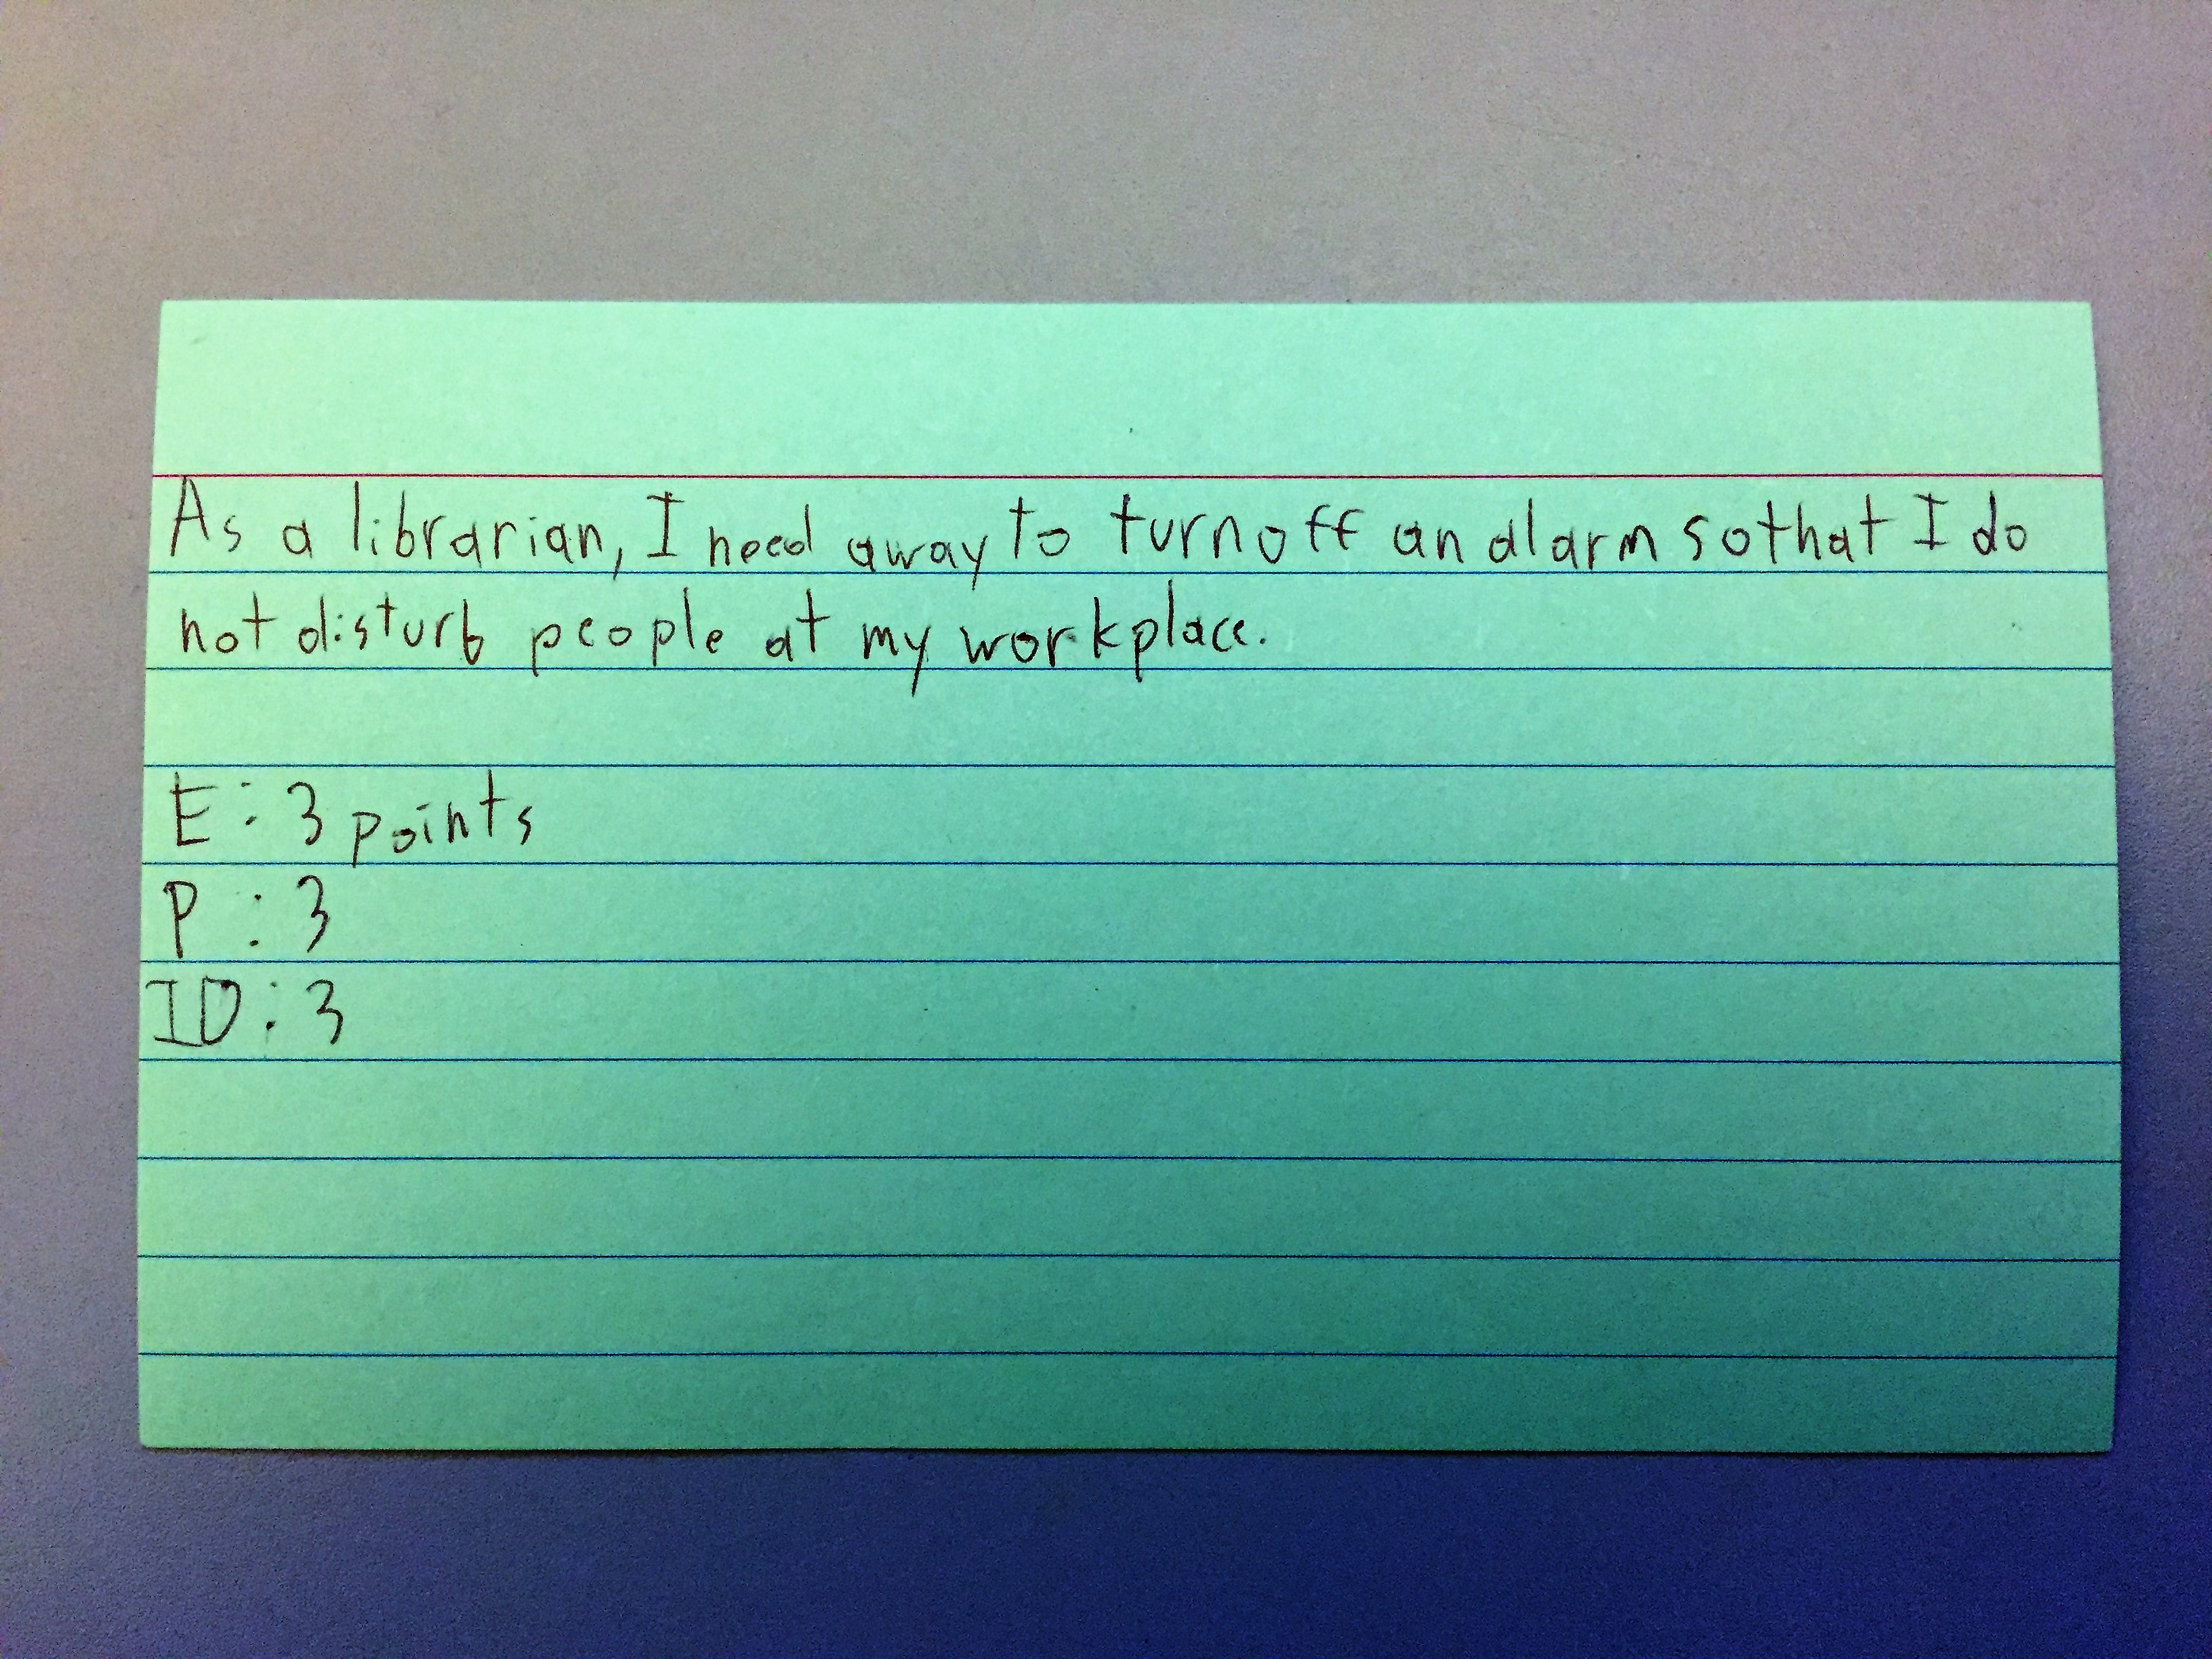 As a librarian, I need a way to turn off an alarm so that I do
not disturb people at my workplace.
E: 3 points
P: 3
ID: 3